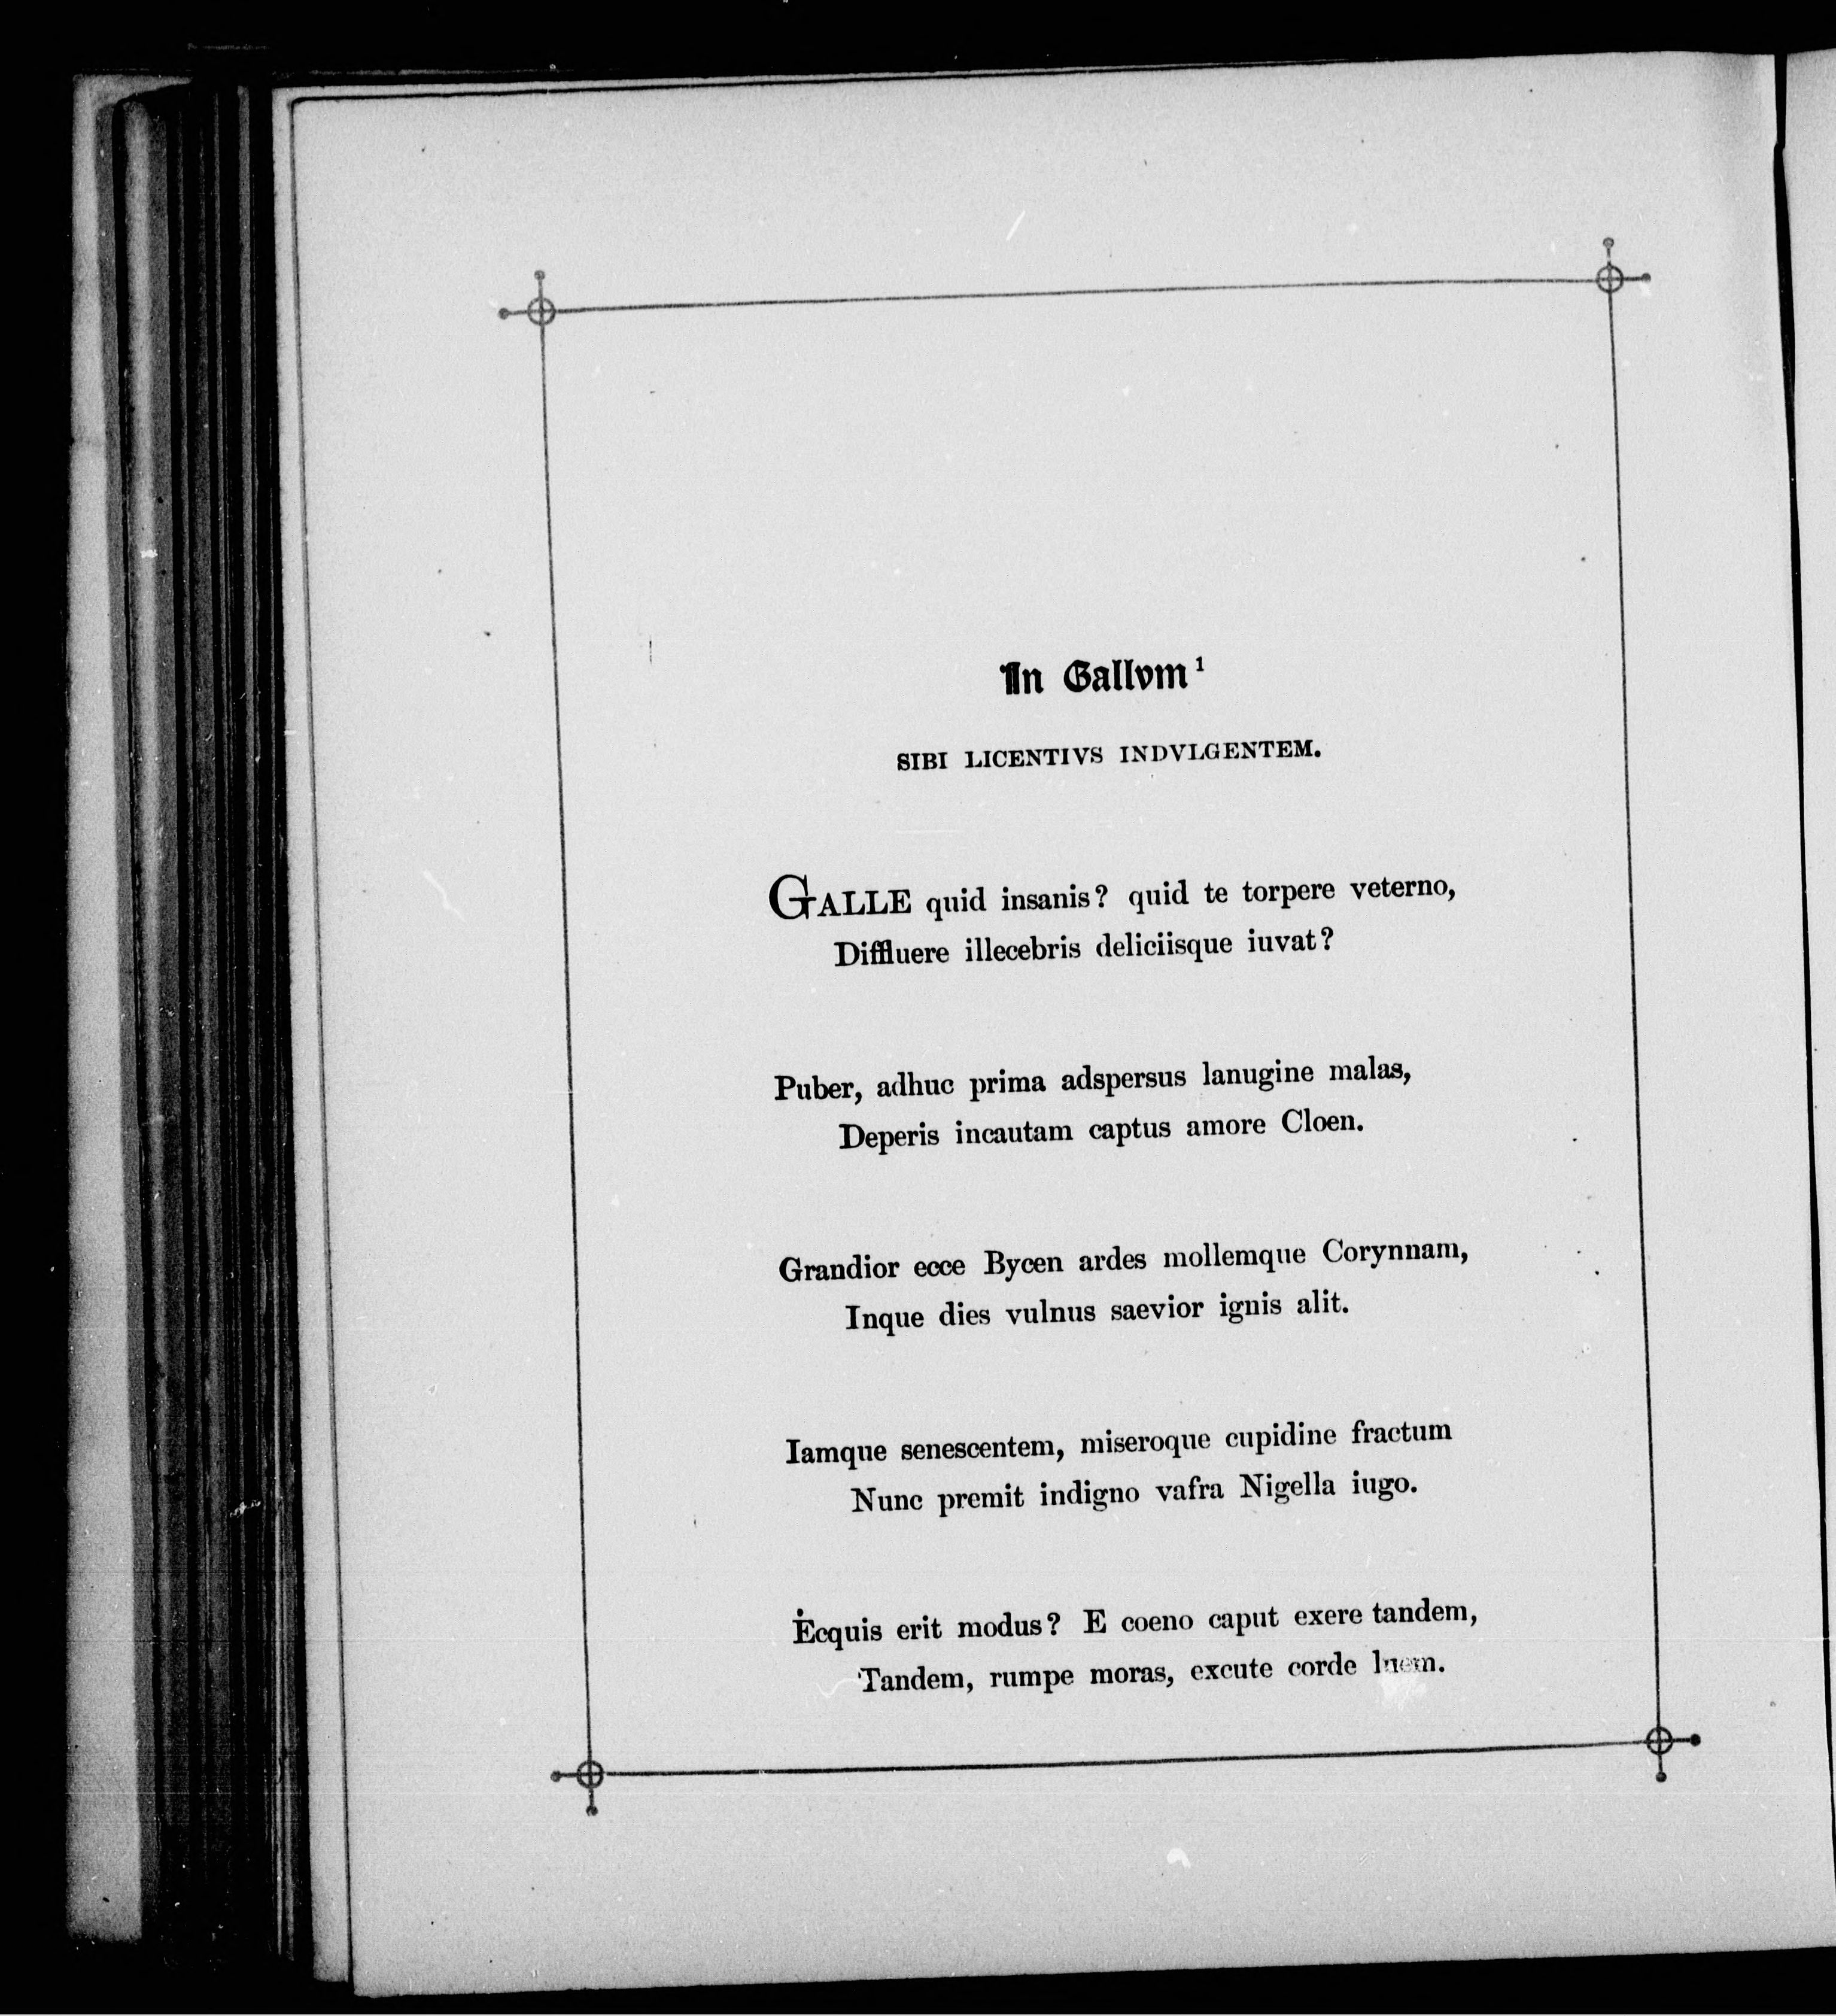 In Gallvm¹
SIBI LICENTIVS INDVLGENTEM.
GALLE quid insanis? quid te torpere veterno,
Diffluere illecebris deliciisque iuvat?
Puber, adhuc prima adspersus lanugine malas,
Deperis incautam captus amore Cloen.
Grandior ecce Bycen ardes mollemque Corynnam,
Inque dies vulnus saevior ignis alit.
Iamque senescentem, miseroque cupidine fractum
Nunc premit indigno vafra Nigella iugo.
Ecquis erit modus? E coeno caput exere tandem,
Tandem, rumpe moras, excute corde luem.